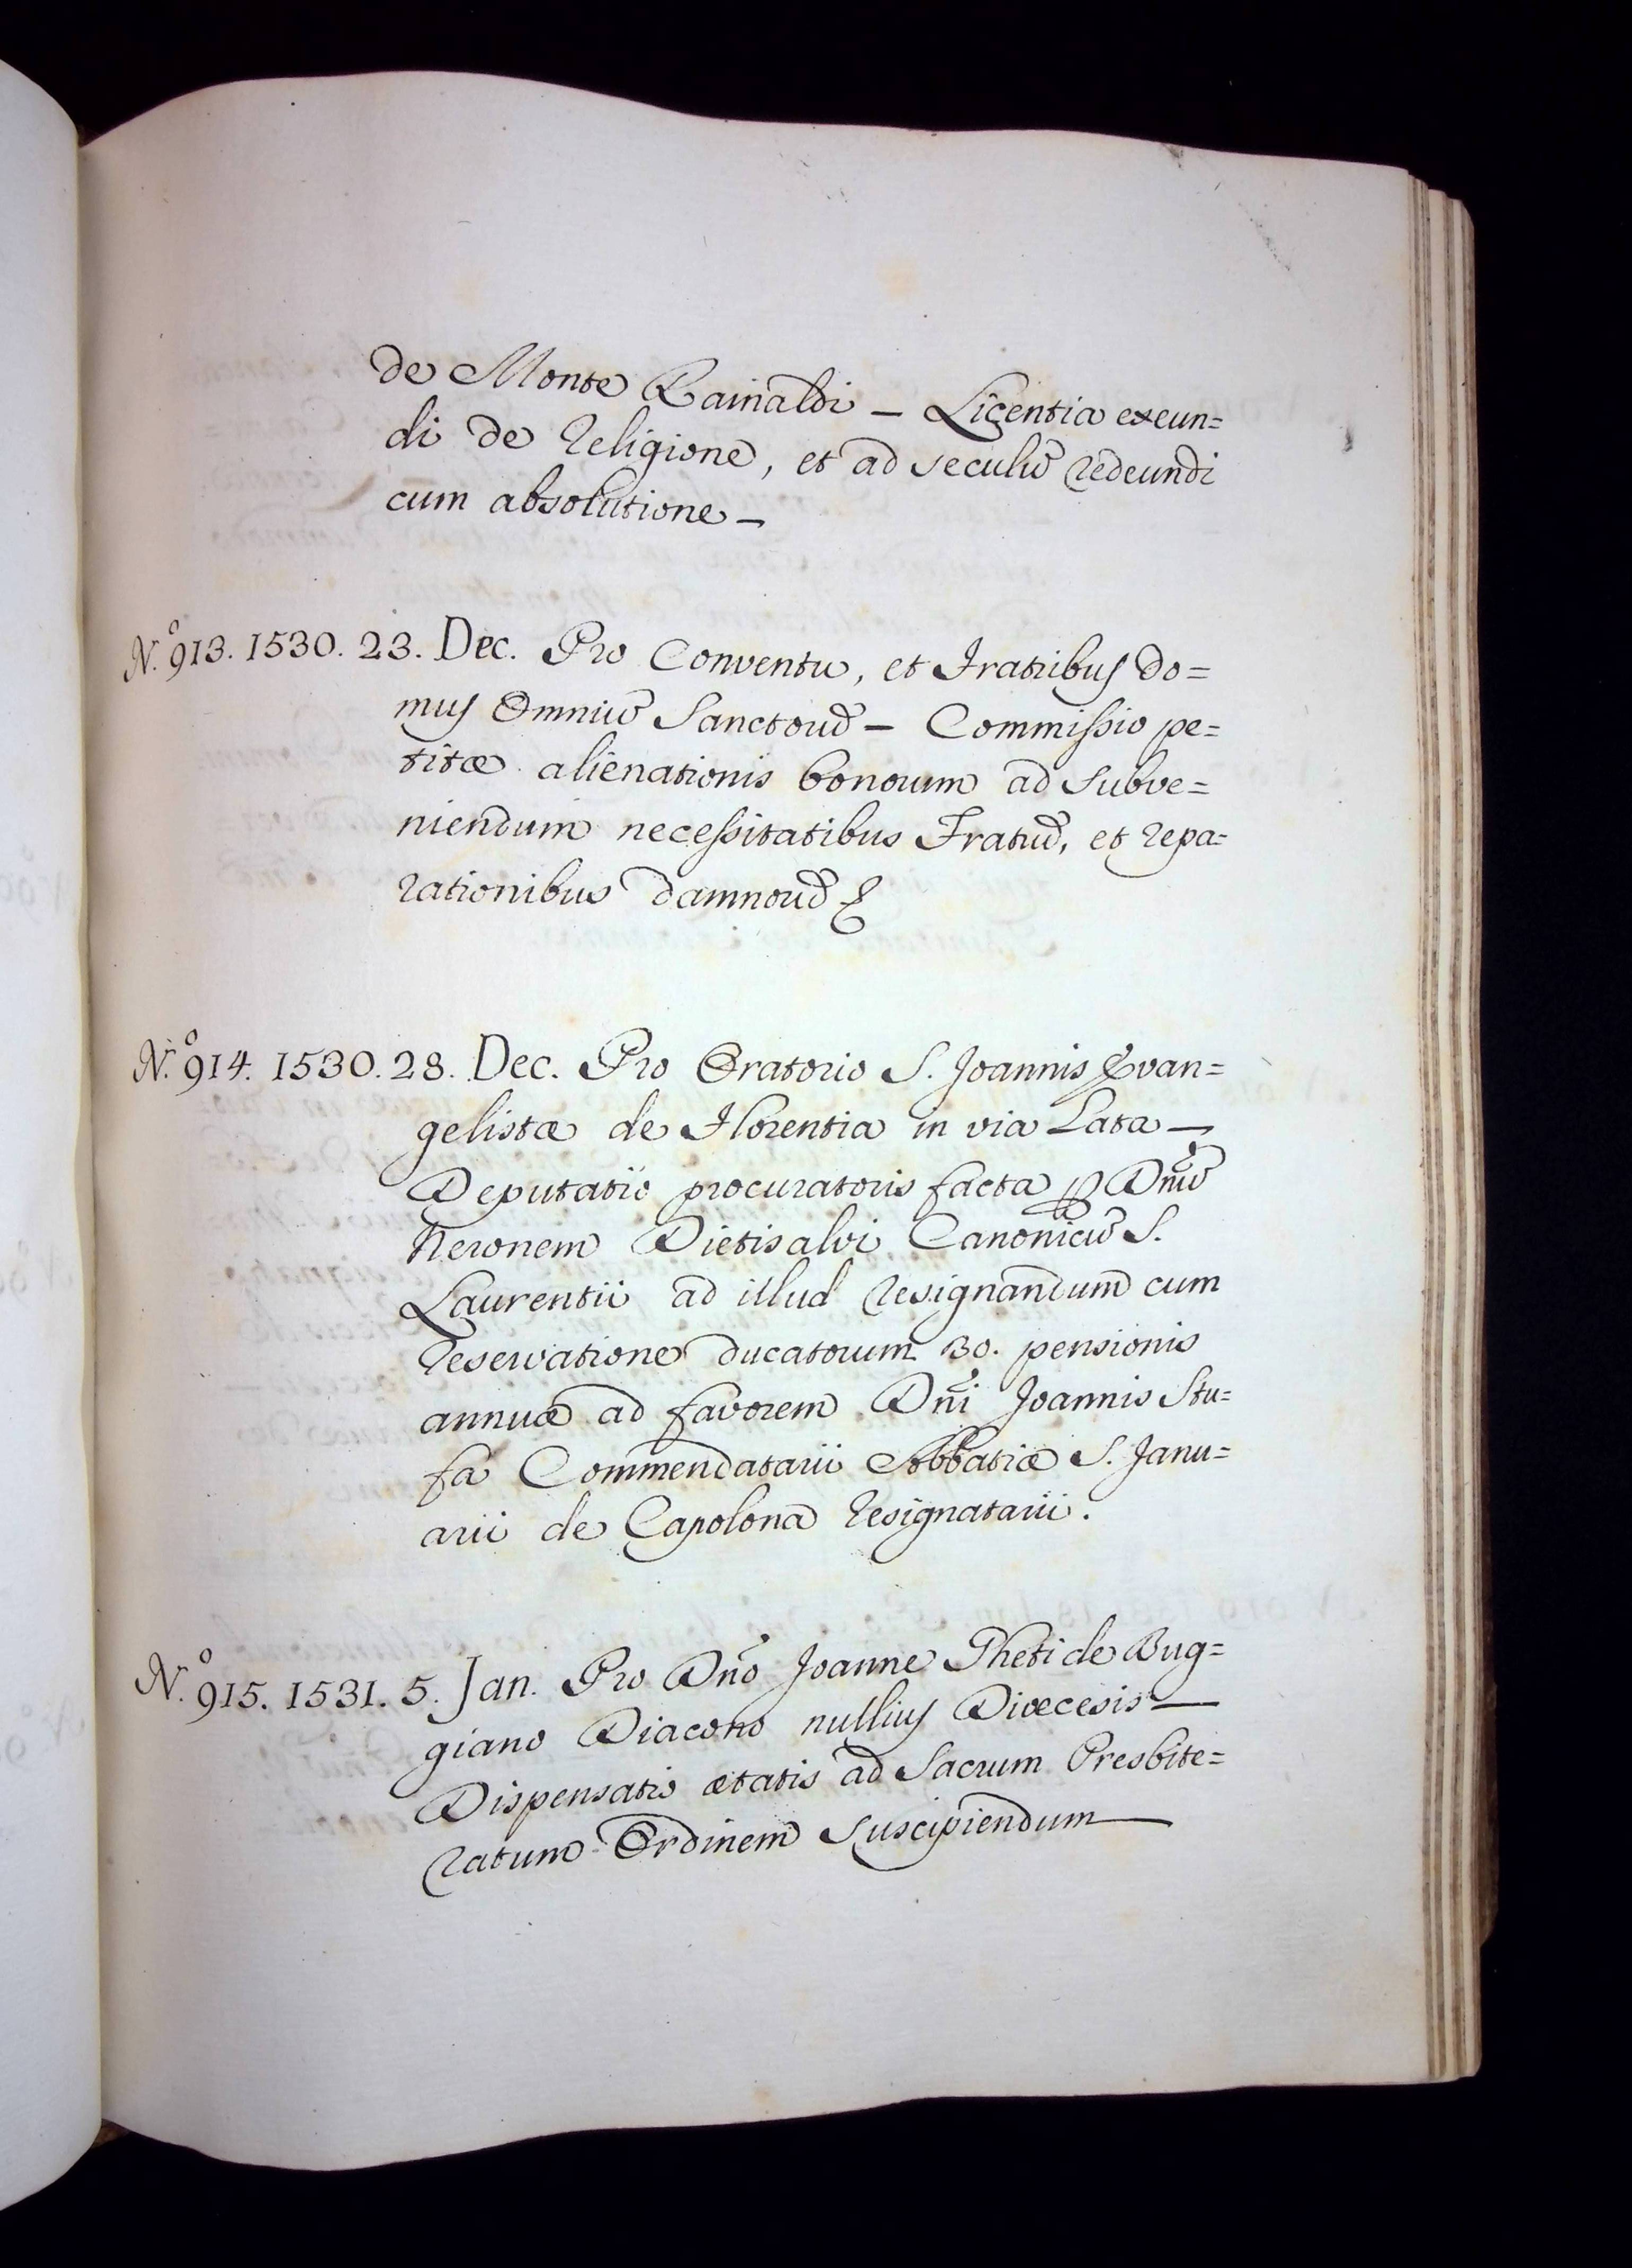 de Monte Rainaldi — Licentia exeun=
di de Religione, et ad seculū redeundi
cum absolutione —
N.º 913. 1530. 23. Dec. Pro Conventu, et Fratribus do=
mus Omniū Sanctorū — Commissio pe=
titæ alienationis bonorum ad subve=
niendum necessitatibus Fratrū, et repa=
rationibus damnorū &
N.º 914. 1530. 28. Dec. Pro Oratorio S. Joannis Evan=
gelistæ de Florentia in via Lata —
Deputatio procuratoris facta ꝑ Dñū
Neronem Dietisalvi Canonicū S.
Laurentii ad illud resignandum cum
reservatione ducatorum 30. pensionis
annuæ ad favorem Dñi Joannis Stu=
fa Commendatarii Abbatiæ S. Janu=
arii de Capolona resignatarii.
N.º 915. 1531. 5. Jan. Pro Dño Joanne Pheti de Bug=
giano Diacono nullius Diœcesis —
Dispensatio ætatis ad Sacrum Presbite=
ratum Ordinem suscipiendum —